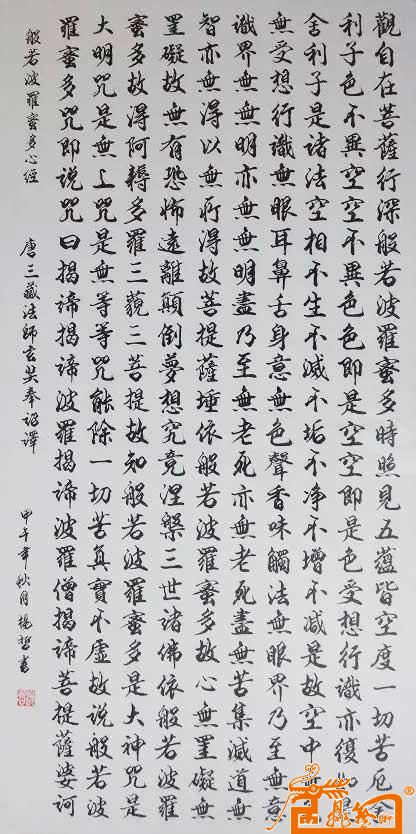 觀自在菩薩行深般若波羅蜜多時照見五蘊皆空度一切苦厄舍
利子色不異空空不異色色即是空空即是色受想行識亦復如是
舍利子是諸法空相不生不滅不垢不净不增不減是故空中無色
無受想行識無眼耳鼻舌身意無色聲香味觸法無眼界乃至無意
識界無無明亦無無明盡乃至無老死亦無老死盡無苦集滅道無
智亦無得以無所得故菩提薩埵依般若波羅蜜多故心無罣礙無
罣礙故無有恐怖遠離顛倒夢想究竟涅槃三世諸佛依般若波羅
蜜多故得阿耨多羅三藐三菩提故知般若波羅蜜多是大神咒是
大明咒是無上咒是無等等咒能除一切苦真實不虛故說般若波
羅蜜多咒即說咒曰揭諦揭諦波羅揭諦波羅僧揭諦菩提薩婆訶
般若波羅蜜多心經 唐三藏法師玄奘奉詔譯 甲午年秋月楊哲書